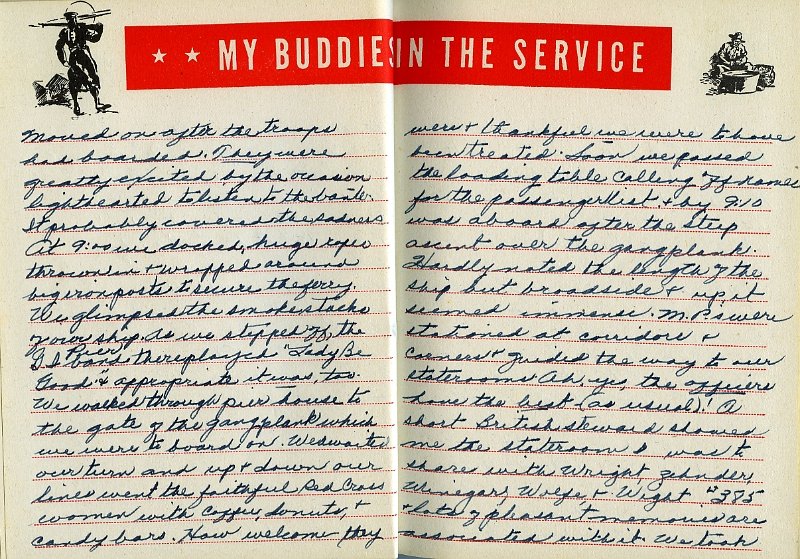 MY BUDDIES IN THE SERVICE
moved on after the troops
had boarded. They were
greatly excited by the occasion
lighthearted to listen to the banter.
It probably covered the sadness
At 9:00 we docked, huge ropes
thrown in & wrapped around
big iron posts to secure the ferry.
We glimpsed the smokestacks
of our ship. As we stepped off, the
Pier
band there played "Lady Be
Good" & appropriate it was, too.
We walked through pier house to
the gate of the gangplank which
we were to board on. We awaited
our turn and up & down our
lines went the faithful Red Cross
women with coffee, donuts, &
candy bars. How welcome they
were & thankful we were to have
been treated. Soon we passed
the loading table calling off names
for the passenger list & by 9:10
was aboard after the steep
ascent over the gangplank.
Hardly noted the length of the
ship but broadside & up it
seemed immense. M.P.s were
stationed at corridors &
corners & guided the way to our
stateroom. Ah, yes, the officers
have the best (as usual)! A
short British steward showed
me the stateroom I was to
share with Wright, Zehnder,
Winegar, Wolfe, & Wight #385
& lots of pleasant memories are
associated with it. We took